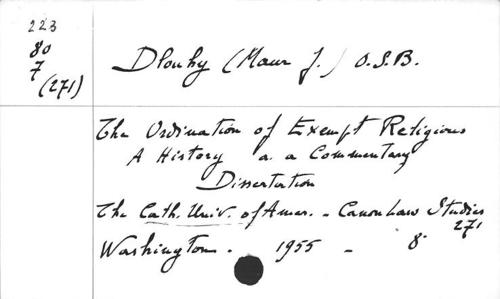 223
80
7
(271)
Dlouhy (Maur J.) O.S.B.
The Ordination of Exempt Religious
A History a. a Commentary
Dissertation
The Cath. Univ. of Amer. - Canon Law Studies
271
Washington. 1955 - 8°